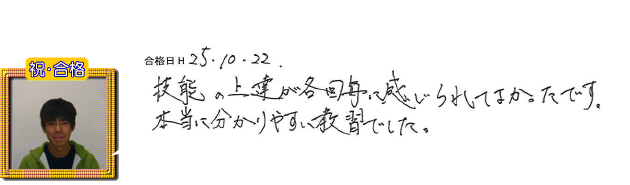 祝・合格
合格日H 25.10.22.
技能の上達が各回毎に感じられてよかったです。
本当に分かりやすい教習でした。